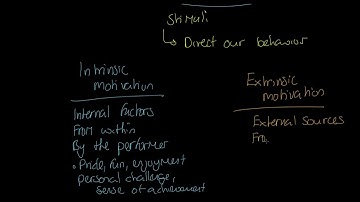 Stimuli
Direct our behavior
Intrinsic
motivation
Internal Factors
From within
By the performer
• Pride, fun, enjoyment
personal challenge,
sense of achievement
Extrinsic
motivation
External Sources
Fro